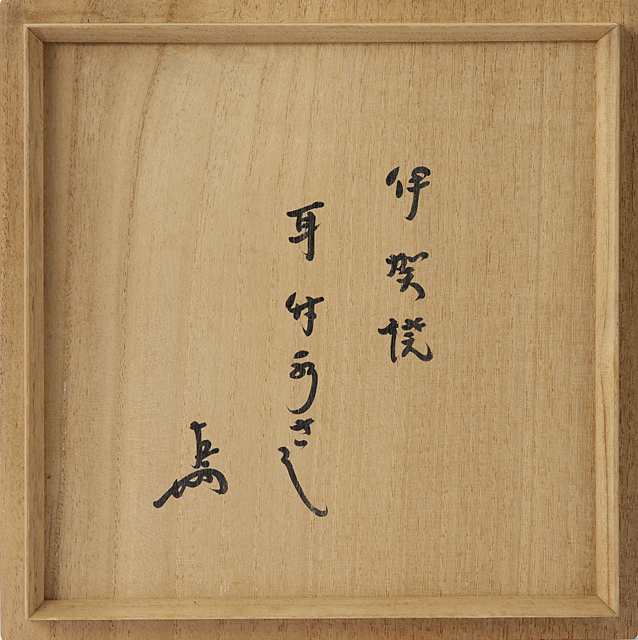 伊賀焼
耳付水さし